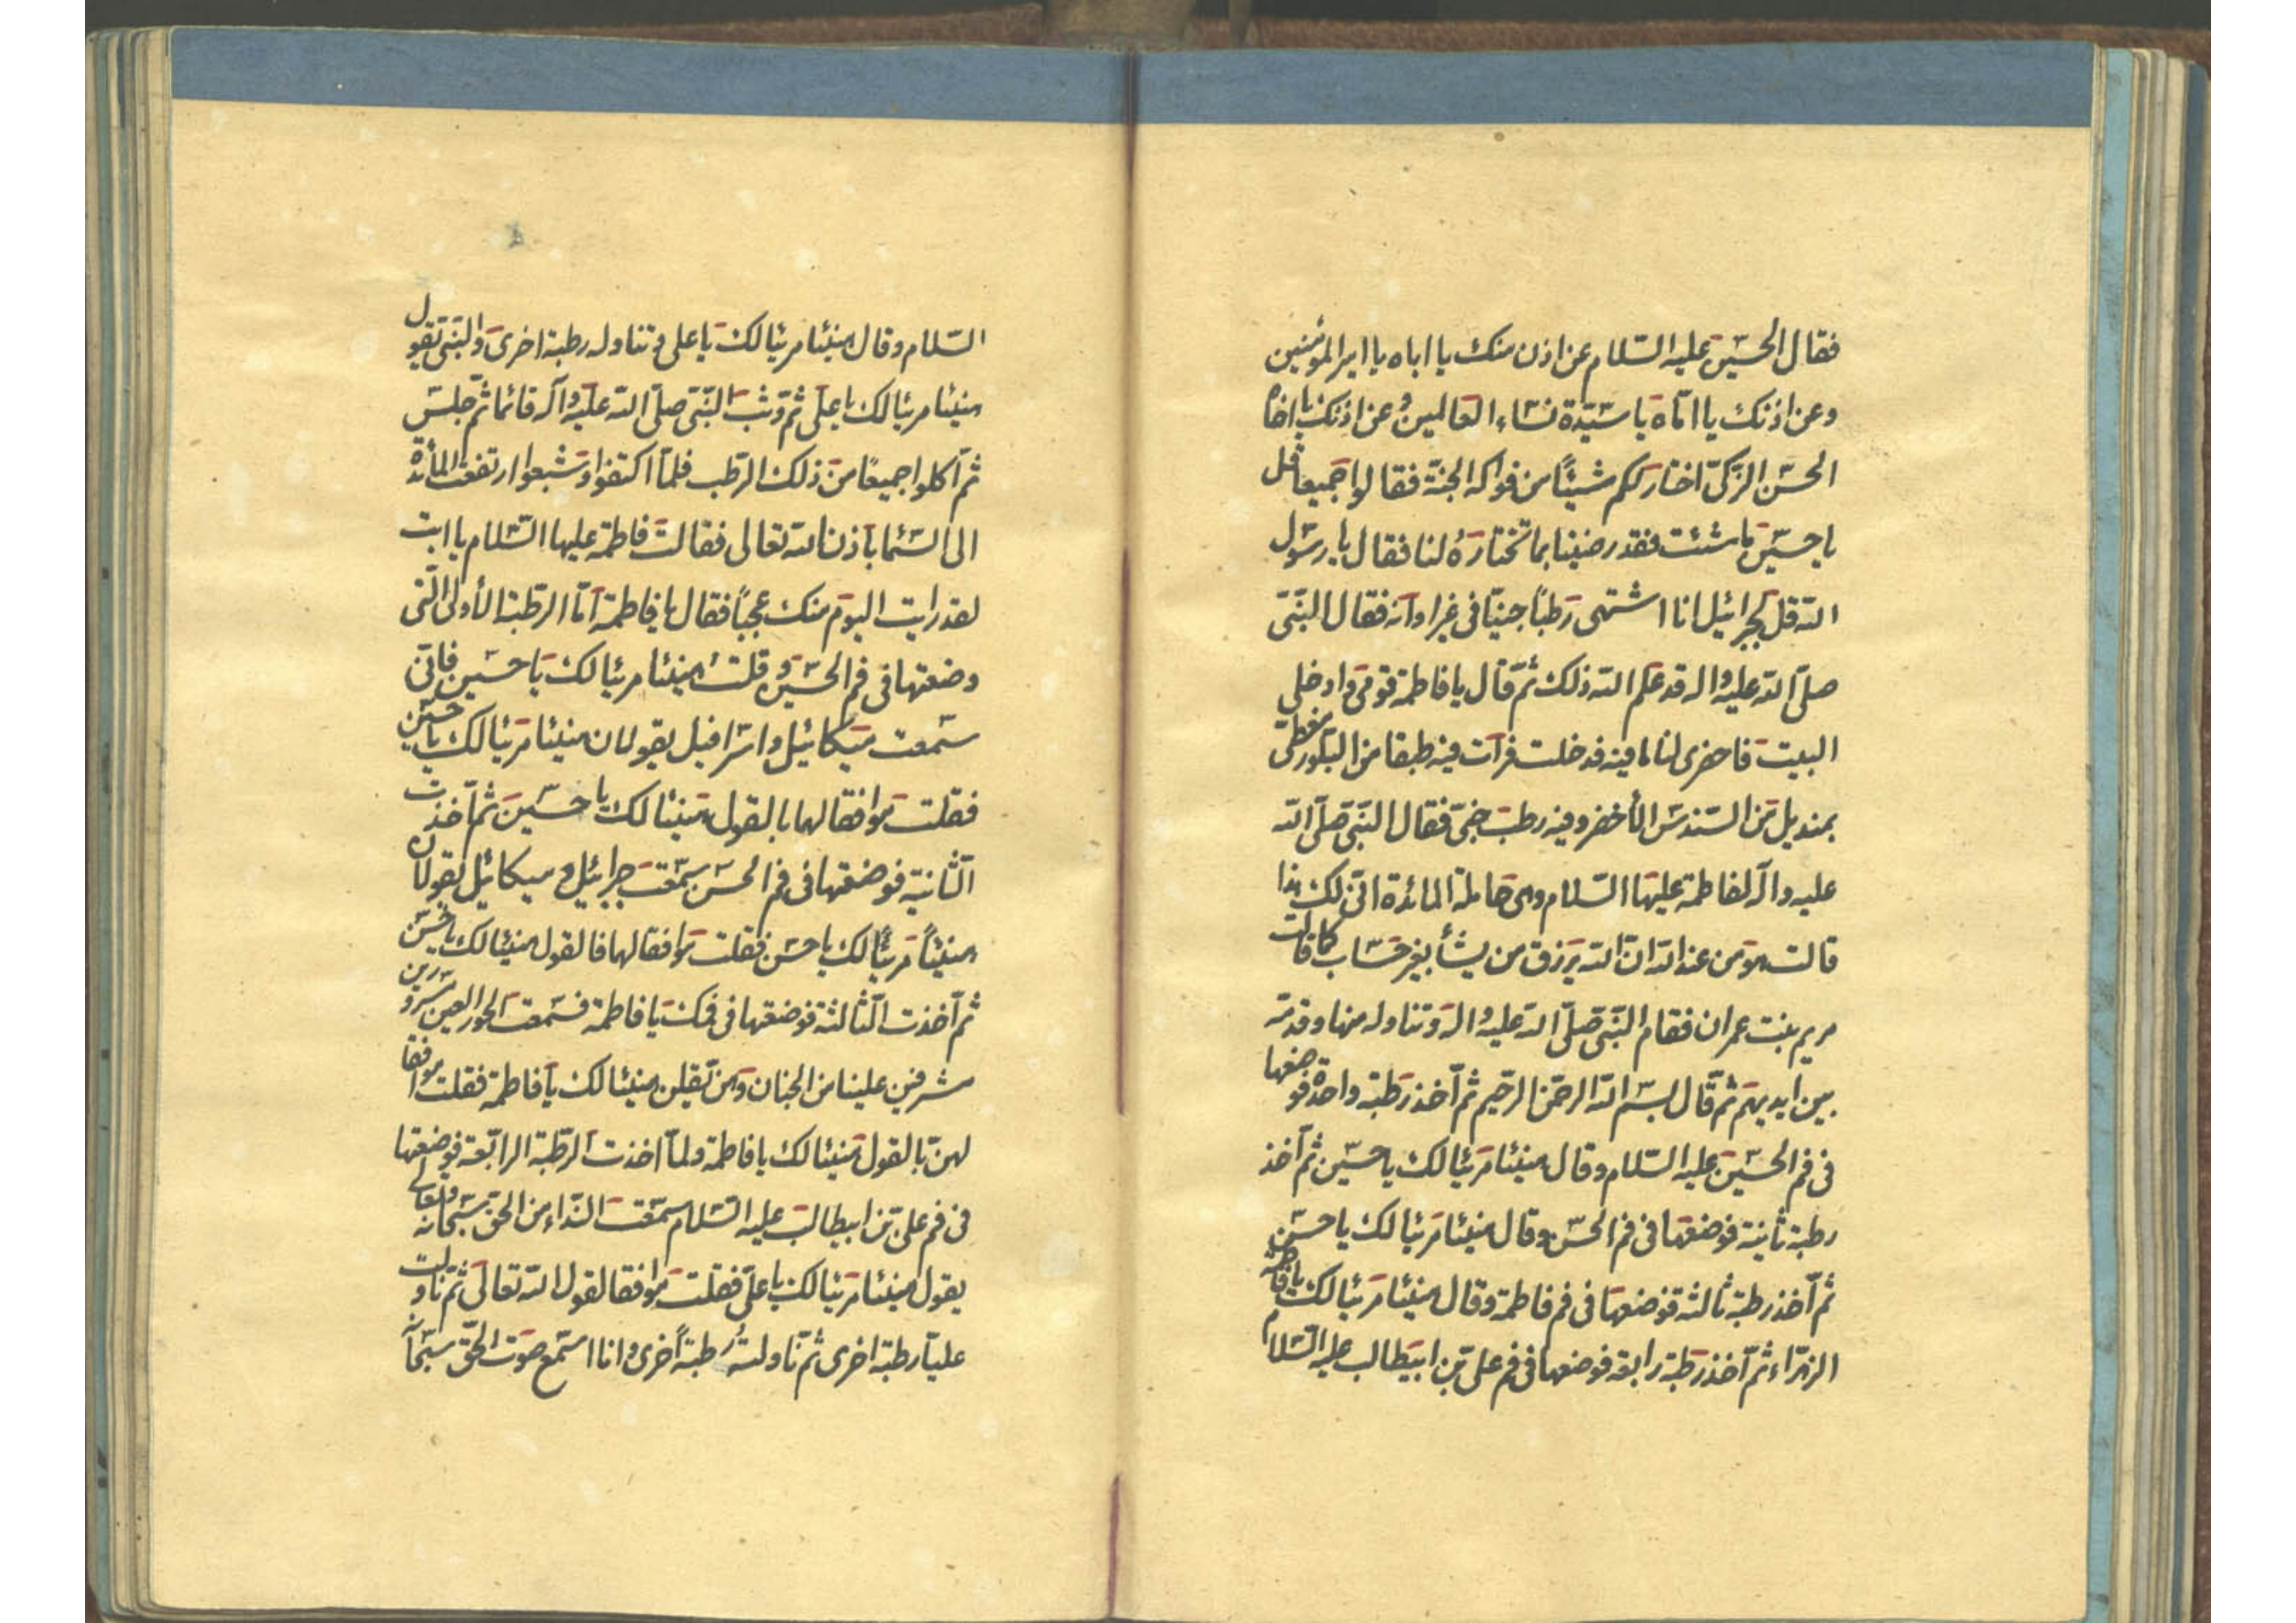 فقال الحسین علیه السلام عن اذن منک یا اباه یا امیر المؤمنین
وعن اذنک یا امّاه یا سیّدة نساء العالمین وعن اذنک یا اخاه
الحسن الزکیّ اختار لکم شیئًا من فواکه الجنّة فقالوا جمیعا قل
یا حسین ما شئت فقد رضینا بما تختاره لنا فقال یا رسول
الله قل لجبرائیل انا اشتهی رطبًا جنیّا فی غیر اوانه فقال النبیّ
صلّی الله علیه واله قد علم الله ذلک ثمّ قال یا فاطمة قومی وادخلی
البیت فاحضری لنا ما فیه فدخلت فرات فیه طبقا من البلّور مغطّی
بمندیل من السندس الأخضر وفیه رطب جنیّ فقال النبیّ صلّی الله
علیه واله لفاطمة علیها السلام وهی حاملة المائدة انّی لک هذا
قالت هو من عند الله انّ الله یرزق من یشأ بغیر حساب کما قالت
مریم بنت عمران فقام النبّی صلّی الله علیه واله وتناوله منها وقدمه
بین ایدیهم ثمّ قال بسم الله الرحمن الرحیم ثم اخذ رطبة واحدة فوضعها
فی فم الحسین علیه السلام وقال هنیئا مریئا لک یا حسین ثم اخذ
رطبة ثانیة فوضعها فی فم الحسن وقال هنیئا مریئا لک یا حسن
ثم اخذ رطبة ثالثة فوضعها فی فم فاطمة وقال هنیئا مریئا لک یا فاطمة
الزهراء ثم اخذ رطبة رابعة فوضعها فی فم علی بن ابیطالب علیه السلام
السّلام وقال هنیئا مریئا لک یا علی وتناوله رطبة اخری والنبّی یقول
هنیئا مریئا لک یا علی ثم وثب النبّی صلّی الله علیه واله قائما ثم جلس
ثم اکلوا جمیعًا من ذلک الرّطب فلمّا اکتفوا وشبعوا ارتفعت المأئدة
الی السّما باذن الله تعالی فقالت فاطمة علیها السّلام یا ابت
لقد رایت الیوم منک عجبًا فقال یا فاطمة امّا الرطبة الأولی الّتی
وضعتها فی فم الحسین وقلت هنیئا مریئا لک یا حسین فانّی
سمعت میکائیل واسرافیل یقولان هنیئا مریئا لک یا حسین
فقلت موافقا لهما بالقول هنیئا لک یا حسین ثم اخذت
الثّانیة فوضعتها فی فم الحسن سمعت جبرائیل ومیکائیل یقولان
هنیئًا مریئًا لک یا حسن فقلت موافقا لهما فالقول هنیئا لک یا حسن
ثم اخذت الثّالثة فوضعتها فی فمک یا فاطمة فسمعت الحور العین مسرورین
مشرفین علینا من الجنان وهن یقلن هنیئا لک یا فاطمة فقلت موافقا
لهن بالقول هنیئا لک یا فاطمة ولمّا اخذت الرّطبة الرابعة فوضعتها
فی فم علی بن ابیطالب علیه السّلام سمعت النّداء من الحق سبحانه وتعالی
یقول هنیئا مریئا لک یا علیّ فقلت موافقا لقول الله تعالی ثم ناولت
علیّا رطبة اخری ثم ناولته رطبةً اخری وانا اسمع صوت الحّق سبحانه